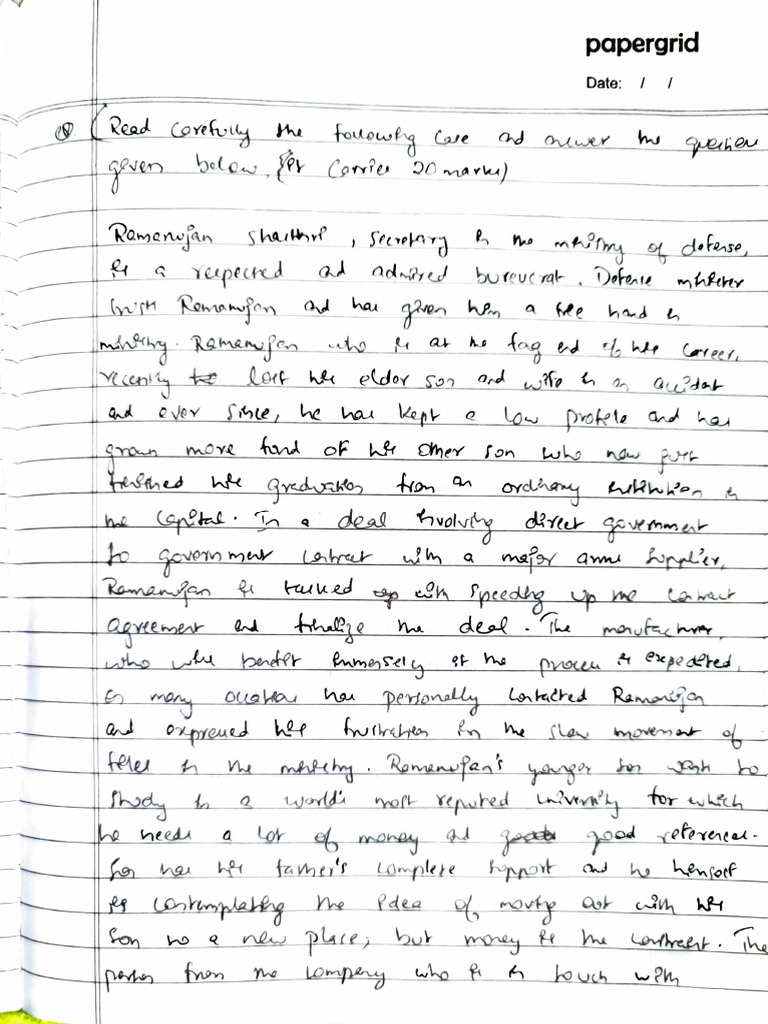 papergrid
Date: / /
Q. (Read carefully the following case and answer the question
given below. {It carries 20 marks)
Ramanujan Shasthri, secretary in the ministry of defense,
is a respected and admired bureucrat. Defense minister
trust Ramanujan and has given him a free hand in
ministry. Ramanujan who is at the fag end of his career,
recently lost his eldor son and wife in an accident
and ever since, he has kept a low profile and has
grown more fond of his other son who now just
finished his graduation from an ordinary institution in
the capital. In a deal involving direct government
to government contract with a major arms supplier,
Ramanujan is tasked with speeding up the contract
agreement and finalize the deal. The manufacturer,
who will benefit immensely if the process is expedited,
on many occations has personally contacted Ramanujan
and expressed his frustration in the slow movement of
files in the ministry. Ramanujan's younger son wish to
study in a world's most reputed university for which
he needs a lot of money and good references.
Son has his father's complete support and he himself
is contemplating the idea of moving out with his
son to a new place; but money is the constraint. The
person from the company who is in touch with